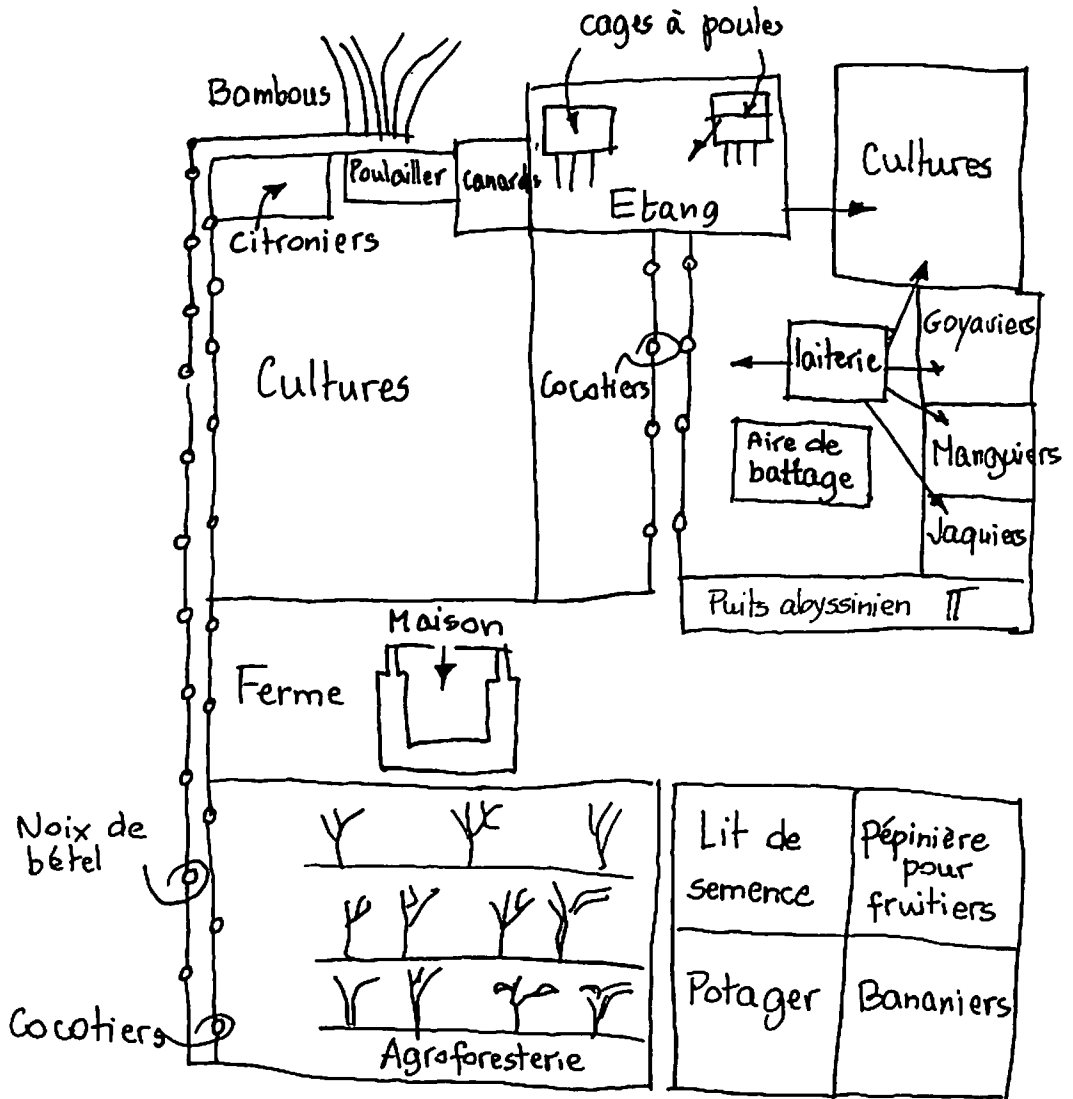 cages à poules
Bambous
Poulailler
Canards
Etang
Cultures
Citroniers
Cultures
Cocotiers
laiterie
Goyaviers
Manguiers
Jaquiers
Aire de
battage
Puits abyssinien
Maison
Ferme
Noix de
bétel
Cocotiers
Agroforesterie
Lit de
semence
Pépinière
pour
fruitiers
Potager
Bananiers